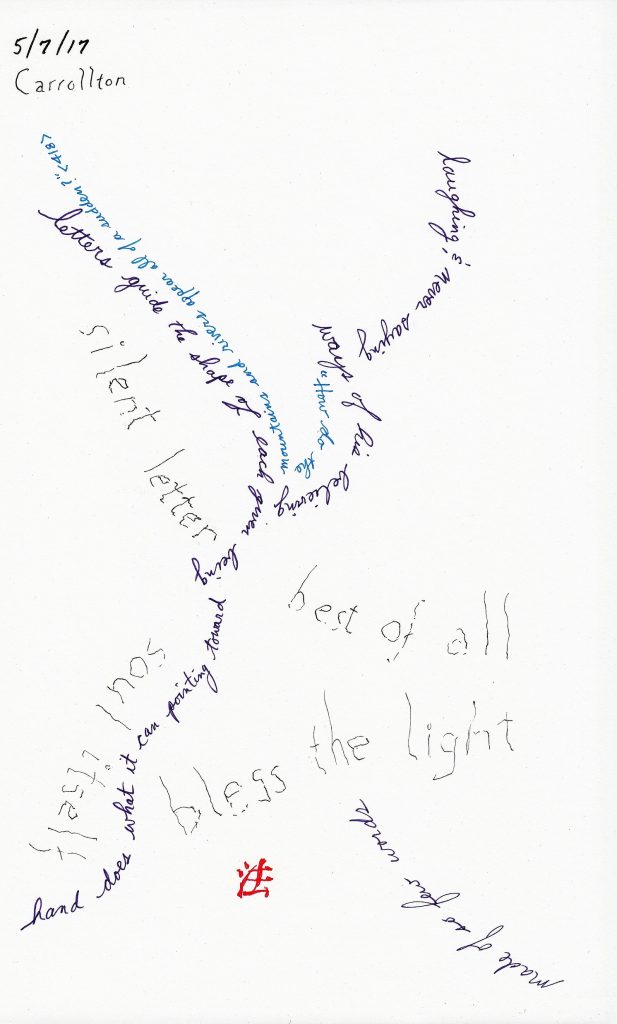 5/7/17
Carrollton
laughing & never saying
of his believing
"How do the
mountains and rivers appear all of a sudden?" <418>
letters guide the shape of each given being
silent letter
best of all
soul itself
hand does what it can pointing toward
bless the light
made of so few words